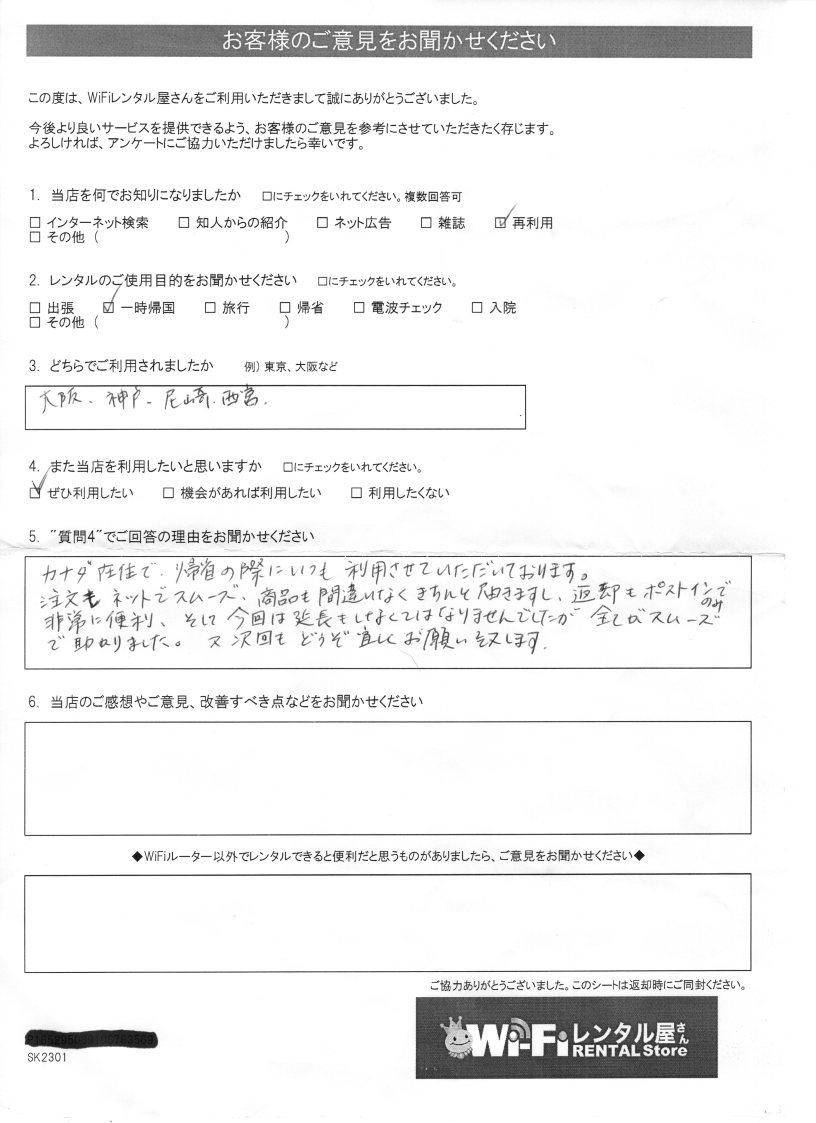 お客様のご意見をお聞かせください
この度は、WiFiレンタル屋さんをご利用いただきまして誠にありがとうございました。
今後より良いサービスを提供できるよう、お客様のご意見を参考にさせていただきたく存じます。
よろしければ、アンケートにご協力いただけましたら幸いです。
1. 当店を何でお知りになりましたか □にチェックをいれてください。複数回答可
□ インターネット検索 □ 知人からの紹介 □ ネット広告 □ 雑誌 ☑ 再利用
□ その他 ( )
2. レンタルのご使用目的をお聞かせください □にチェックをいれてください。
□ 出張 ☑ 一時帰国 □ 旅行 □ 帰省 □ 電波チェック □ 入院
□ その他 ( )
3. どちらでご利用されましたか 例) 東京、大阪など
大阪、神戸、尼崎、西宮.
4. また当店を利用したいと思いますか □にチェックをいれてください。
☑ ぜひ利用したい □ 機会があれば利用したい □ 利用したくない
5. "質問4"でご回答の理由をお聞かせください
カナダ在住で、帰省の際にいつも利用させていただいております。
注文もネットでスムーズ、商品も間違いなくきちんと届きますし、返却もポストインのみで
非常に便利、そして今回は延長もしなくてはなりませんでしたが全てがスムーズ
で助かりました。又次回もどうぞ宜しくお願い致します.
6. 当店のご感想やご意見、改善すべき点などをお聞かせください
◆WiFiルーター以外でレンタルできると便利だと思うものがありましたら、ご意見をお聞かせください◆
ご協力ありがとうございました。このシートは返却時にご同封ください。
Wi-Fiレンタル屋さん
RENTAL Store
SK2301